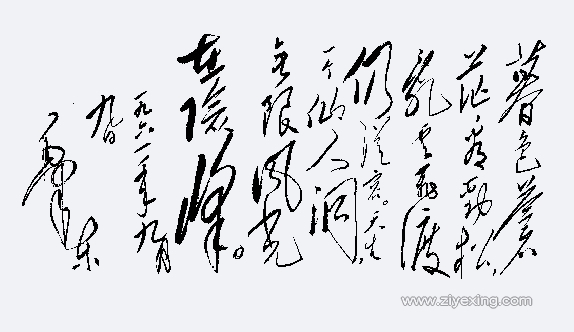 暮色蒼
茫看勁松,
乱云飞渡
仍從容。天生
一个仙人洞
无限风光
在險峰。
一九六一年九月
九日
毛泽东
www.ziyexing.com